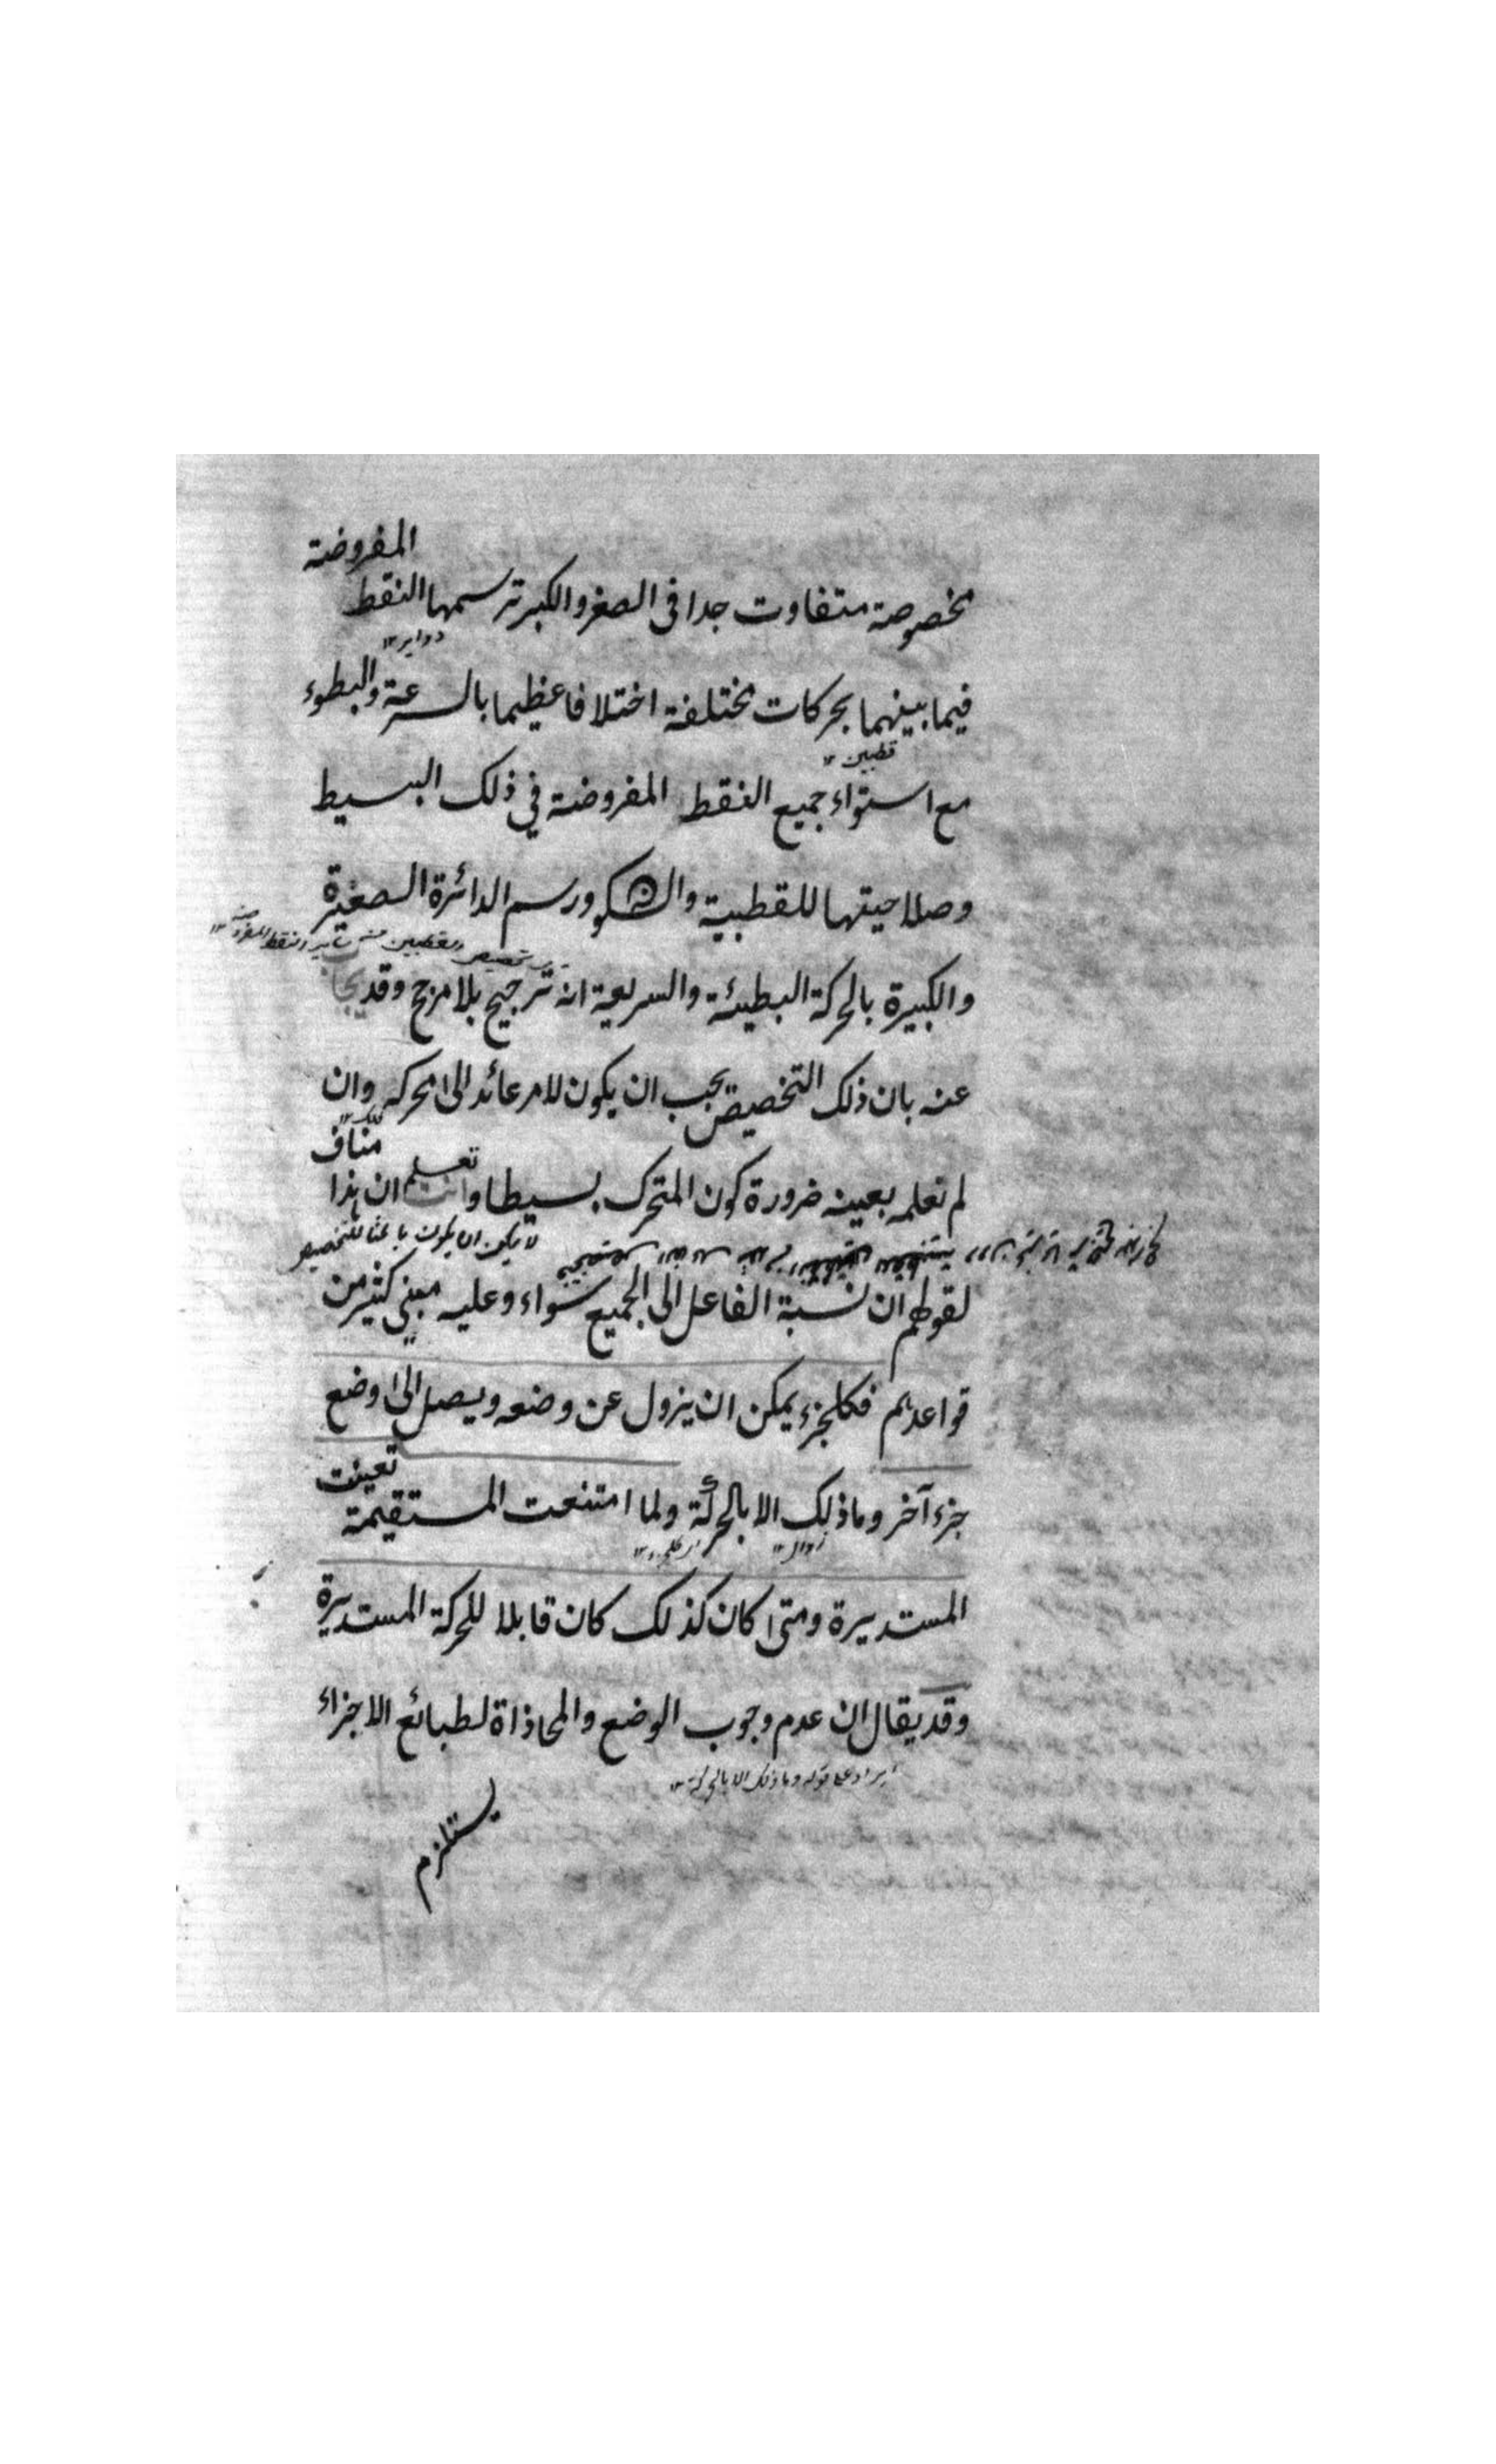 مخصوصة متفاوت جدا فى الصغر والكبر ترسمها النقط المفروضة
دواير ١٢
فيما بينهما بحركات مختلفة اختلافا عظيما بالسرعة والبطوء
قطبين ١٢
مع استواء جميع النقط المفروضة في ذلك البسيط
وصلاحيتها للقطبية والسكون ورسم الدائرة الصغيرة
والكبيرة بالحركة البطيئة والسريعة انه ترجيح بلا مرجح وقد يجاب
عنه بان ذلك التخصيص يجب ان يكون لامر عائد الى المحركه وان
فلك ١٢
لم نعلمه بعينه ضرورة كون المتحرك بسيطا وانت تعلم ان هذا مناف
لا يكن ان يكون باعثا للتخصيص
لقولهم ان نسبة الفاعل الى الجميع سواء وعليه مبنى كثير من
قواعدهم فكل جزء يمكن ان يزول عن وضعه ويصل الى وضع
جزء آخر وما ذلك الا بالحركة ولما امتنعت المستقيمة تعينت
زوال ١٢
المستديرة ومتى كان كذلك كان قابلا للحركة المستديرة
وقد يقال ان عدم وجوب الوضع والمحاذاة لطبائع الاجزاء
ايراد على قوله وما ذلك الا بالحركة ١٢
يستلزم